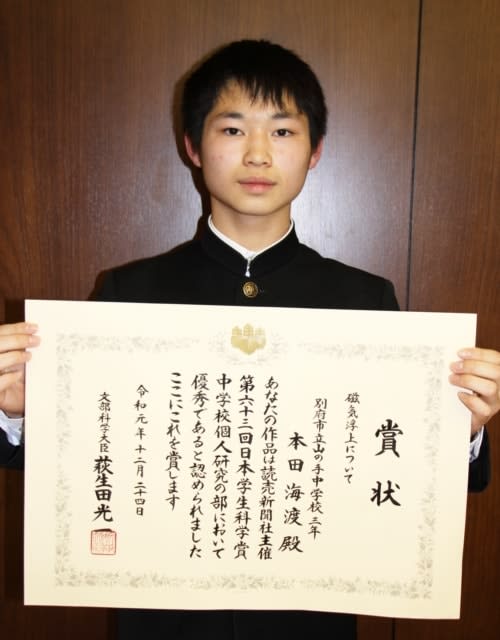 賞状
磁気浮上について
別府市立山の手中学校三年
本田海渡殿
あなたの作品は読売新聞社主催
第六十三回日本学生科学賞
中学校個人研究の部において
優秀であると認められました
ここにこれを賞します
令和元年十二月二十四日
文部科学大臣 萩生田光一